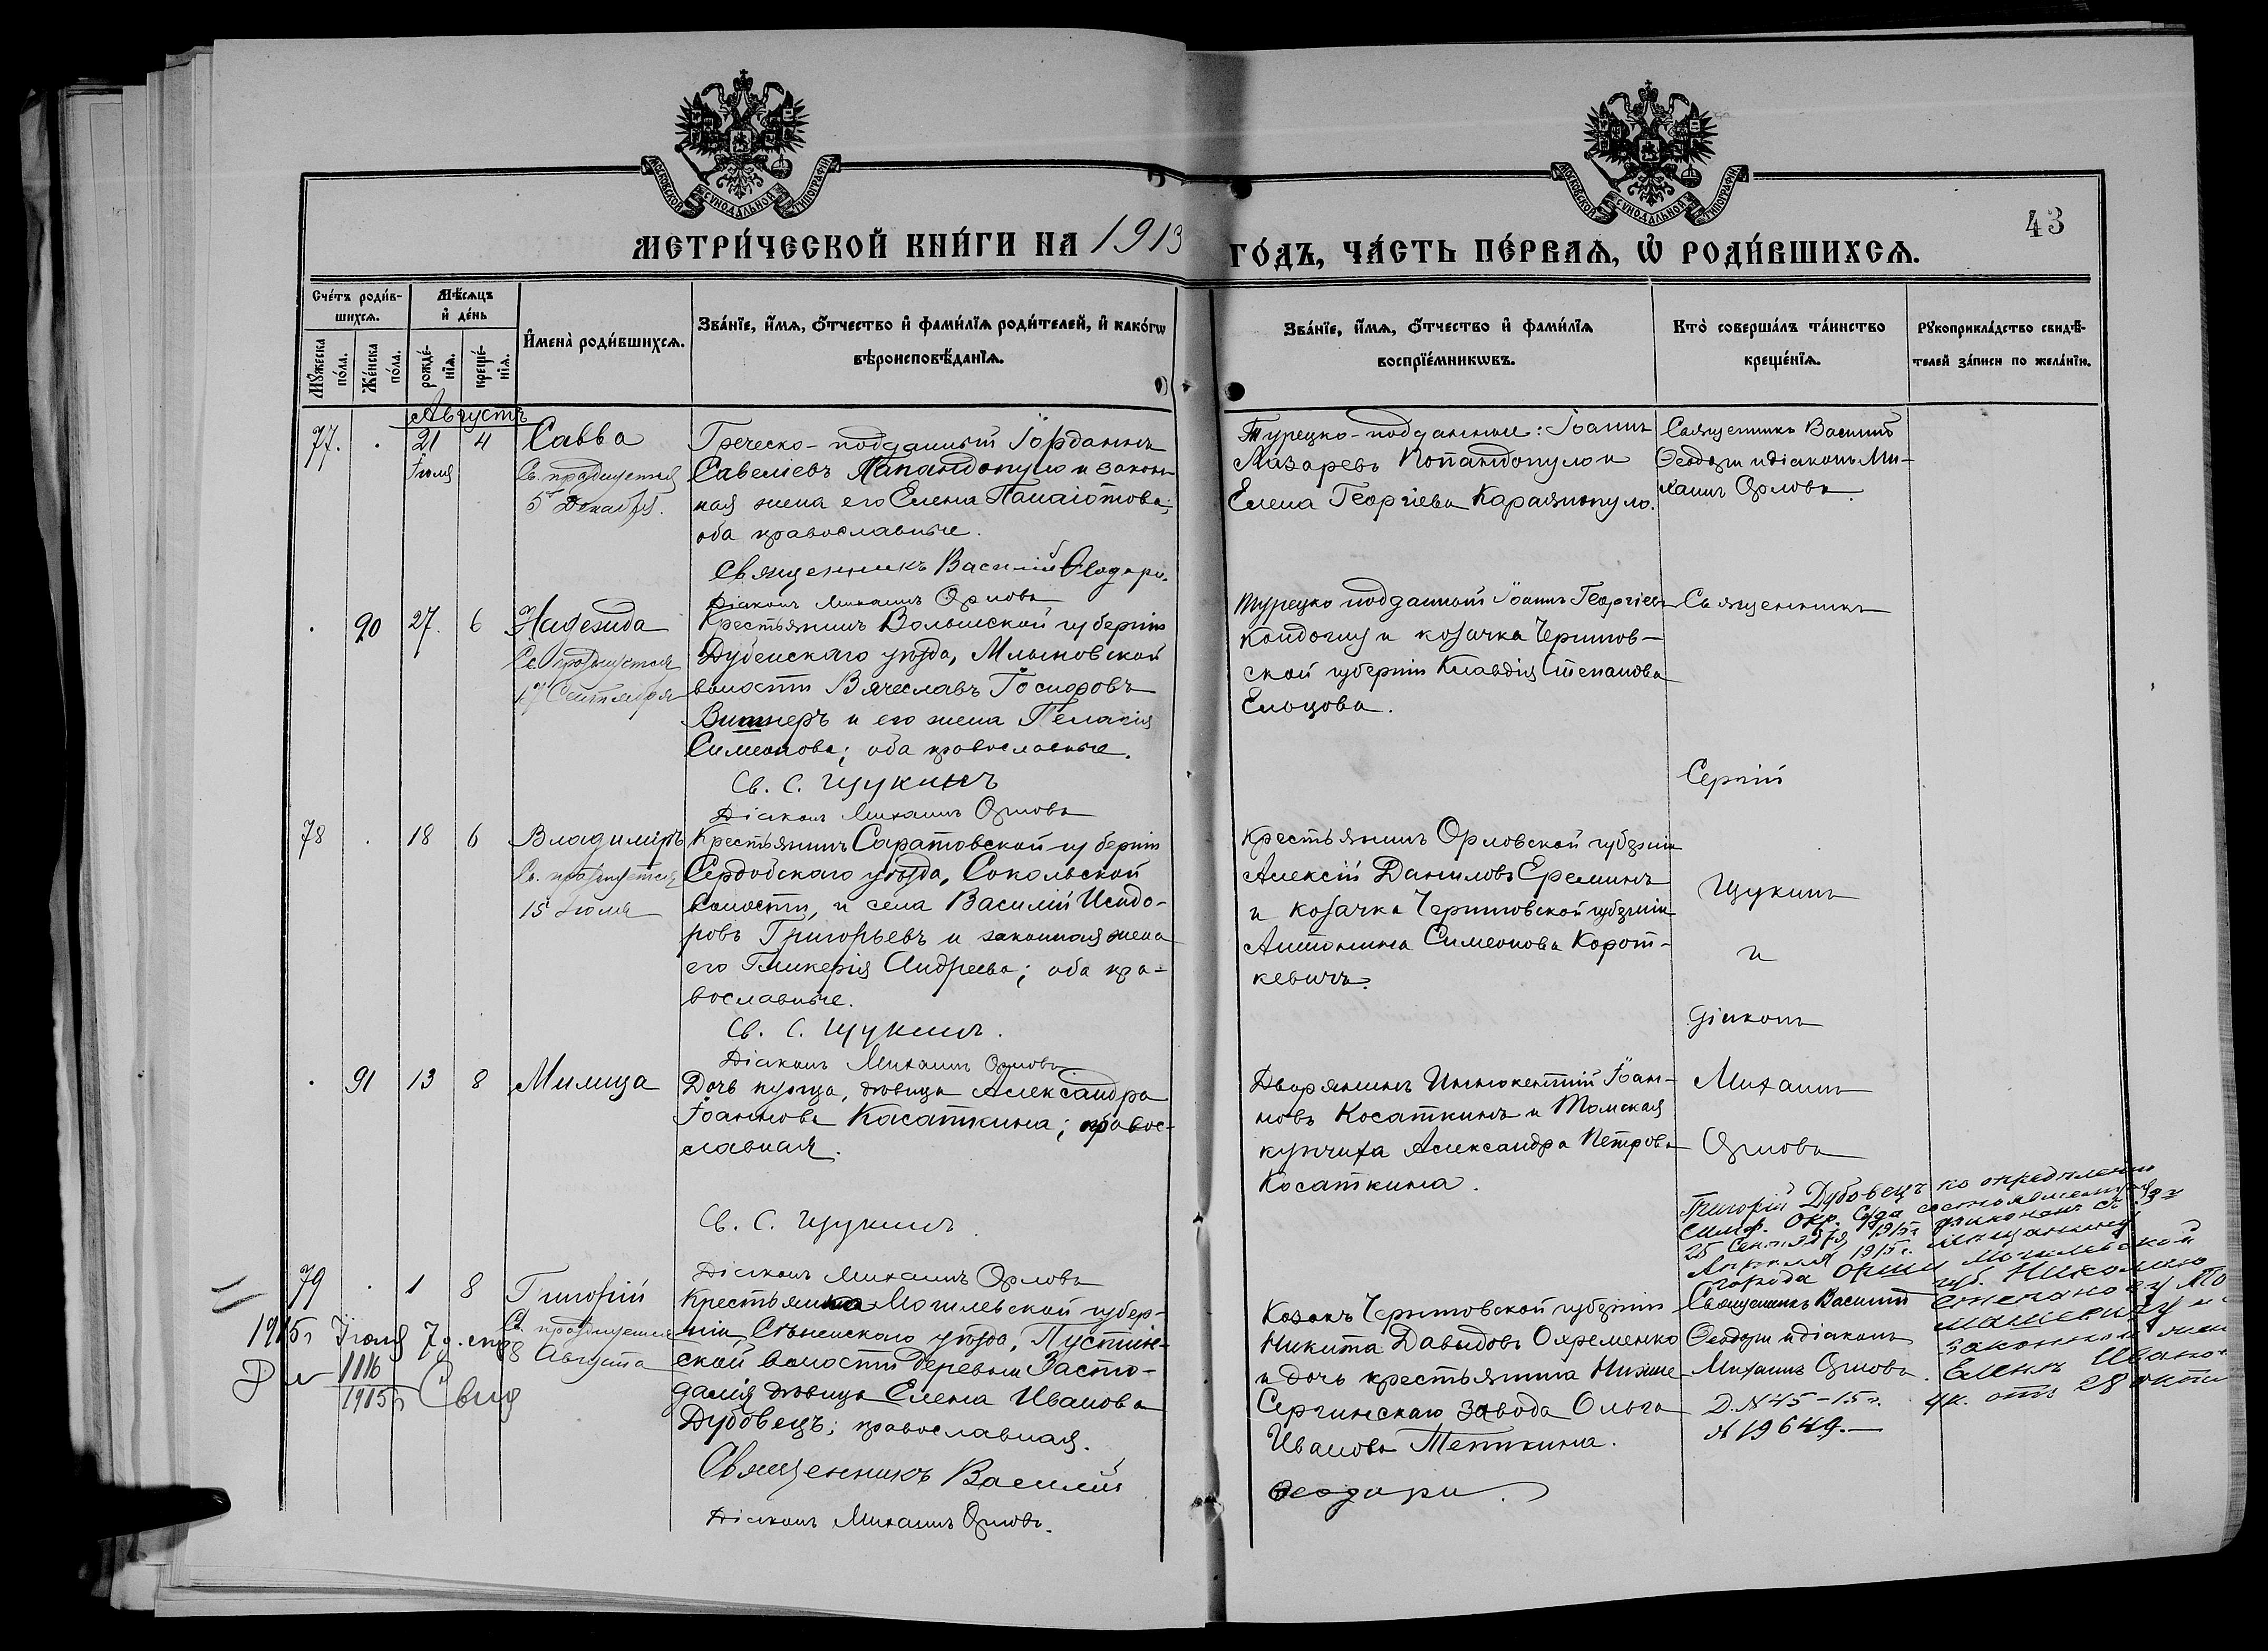 МОСКОВСКОЙ СУНОДАЛЬНОЙ ТИПОГРАФІИ
МОСКОВСКОЙ СУНОДАЛЬНОЙ ТИПОГРАФІИ
43
МЕТРИ́ЧЕСКОЙ КНИ́ГИ НА 1913 ГО́ДЪ, ЧА́СТЬ ПЕ́РВАѦ, Ѡ҆ РОДИ́ВШИХСѦ.
Сче́тъ роди́в-
шихсѧ.
Мѣ́сѧцъ
и҆ де́нь
Мꙋ́жеска
по́ла.
Же́нска
по́ла.
рожде́-
нїѧ.
креще́-
нїѧ.
И҆мена̀ роди́вшихсѧ.
Зва́нїе, и҆́мѧ, ѻ҆́тчество и҆ фами́лїѧ роди́телей, и҆ како́гѡ
вѣроисповѣ́данїѧ.
Зва́нїе, и҆́мѧ, ѻ҆́тчество и҆ фами́лїѧ
воспрїе́мникѡвъ.
Кто̀ соверша́лъ та́инство
креще́нїѧ.
Рꙋкоприкла́дство свидѣ́-
телей за́писи по жела́нїю.
Августъ
77. . 21 4 Савва
Іюля
Св. празднуется
5 Декабря.
Греческо-подданный Іорданъ
Савеліевъ Папандопуло и закон-
ная жена его Елена Панаіотова;
оба православные.
Священникъ Василій Ѳеодори.
Діаконъ Михаилъ Орловъ
Турецко-подданные: Іоаннъ
Лазаревъ Попандопуло и
Елена Георгіева Караянопуло.
Священникъ Василій
Ѳеодори и діаконъ Ми-
хаилъ Орловъ.
. 90 27. 6 Надежда
Св. празднуется
17 Сентября
Крестьянинъ Волынской губерніи
Дубенскаго уѣзда, Млыновской
волости Вячеславъ Іосифовъ
Виттнеръ и его жена Пелагія
Симеонова; оба православные.
Св. С. Щукинъ
Діаконъ Михаилъ Орловъ
Турецко подданный Іоаннъ Георгіевъ
и козачка Чернигов-
ской губерніи Клавдія Степанова
Ельцова.
Священникъ
Сергій
Щукинъ
и
діаконъ
Михаилъ
Орловъ
78 . 18 6 Владиміръ
Св. празднуется
15 Іюля
Крестьянинъ Саратовской губерніи
Сердобскаго уѣзда, Сокольской
волости, и села Василій Исидо-
ровъ Григорьевъ и законная жена
его Гликерія Андреева; оба пра-
вославные.
Св. С. Щукинъ.
Діаконъ Михаилъ Орловъ
Крестьянинъ Орловской губерніи
Алексій Даниловъ Ереминъ
и козачка Черниговской губерніи
Антонина Симеонова Корот-
кевичъ.
. 91 13 8 Милица
Дочь купца, дѣвица Александра
Іоаннова Касаткина; правос-
лавная.
Св. С. Щукинъ
Діаконъ Михаилъ Орловъ
Дворянинъ Иннокентій Іоан-
новъ Косаткинъ и Томская
купчиха Александра Петрова
Косаткина.
79 . 1 8 Григорій
Св. празднуется
8 Августа
1915 г Іюля 7 д.
1116
1915 г Свид
Крестьянка Могилевской губер-
ніи, Сѣннескаго уѣзда, Пустин-
ской волости деревни
дѣвица Елена Иванова
Дубовецъ; православная.
Священникъ Василій
Ѳеодори.
Діаконъ Михаилъ Орловъ.
Козакъ Черниговской губерніи
Никита Давыдовъ Охременко
и дочь крестьянина Нижне-
Сергинскаго завода Ольга
Иванова Теткина.
Священникъ Василій
Ѳеодори и діаконъ
Михаилъ Орловъ.
Д. № 45-15 г.
№ 19649.
Григорій Дубовецъ по опредѣленію
Симф. Окр. Суда состоявшемуся
25 Сентября 1915 г.
Апрѣля 1915 г. мѣщаниномъ
города Орши Могилевской
губ. Николаю
Степанову
законной
Еленѣ Иванов
ук. отъ 28 октя